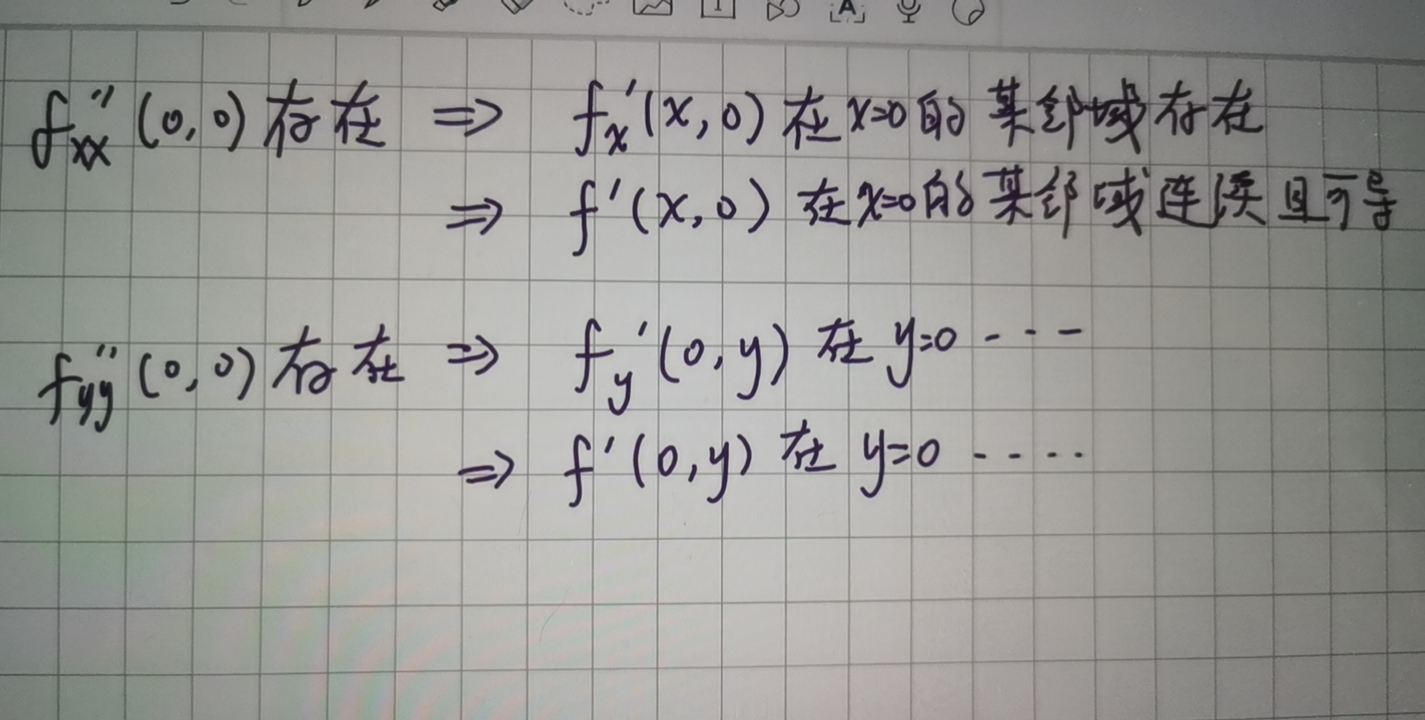 f''xx(0,0)存在 ⇒ f'x(x,0)在x=0的某邻域存在
⇒ f'(x,0)在x=0的某邻域连续且可导
f''yy(0,0)存在 ⇒ f'y(0,y)在y=0 ---
⇒ f'(0,y)在y=0 ----